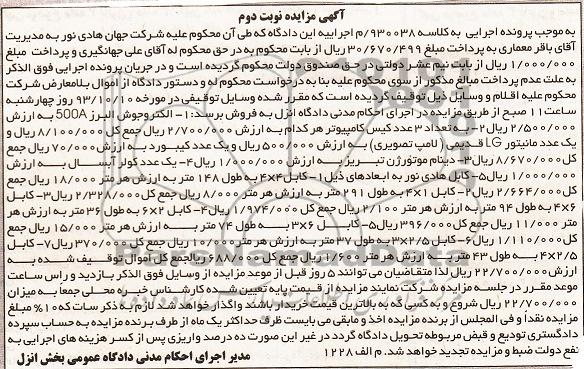 آگهی مزایده نوبت دوم
به موجب پرونده اجرایی به کلاسه ۹۳۰۰۳۸/م اجراییه این دادگاه که طی آن محکوم علیه شرکت جهان هادی نور به مدیریت
آقای باقر معماری به پرداخت مبلغ ۳۰/۶۷۰/۴۹۹ ریال از بابت محکوم به در حق محکوم له آقای علی جهانگیری و پرداخت مبلغ
۱/۰۰۰/۰۰۰ ریال از بابت نیم عشر دولتی در حق صندوق دولت محکوم گردیده است و در جریان پرونده اجرایی فوق الذکر
به علت عدم پرداخت مبالغ مذکور از سوی محکوم علیه بنا به درخواست محکوم له و دستور دادگاه از اموال بلامعارض شرکت
محکوم علیه اقلام و وسایل ذیل توقیف گردیده است که مقرر شده وسایل توقیفی در مورخه ۹۳/۱۰/۱۰ روز چهارشنبه
ساعت ۱۱ صبح از طریق مزایده در اجرای احکام مدنی دادگاه انزل به فروش برسد: ۱- الکتروجوش البرز 500A به ارزش
۲/۵۰۰/۰۰۰ ریال ۲- تعداد ۳ عدد کیس کامپیوتر هر کدام به ارزش ۲/۷۰۰/۰۰۰ ریال جمع کل ۸/۱۰۰/۰۰۰ ریال و
یک عدد مانیتور LG قدیمی (لامپ تصویری) به ارزش ۵۰۰/۰۰۰ ریال و یک عدد کیبورد به ارزش ۷۰/۰۰۰ ریال جمع
کل ۸/۶۷۰/۰۰۰ ریال ۳- دینام موتوژن تبریز به ارزش ۱/۸۰۰/۰۰۰ ریال ۴- یک عدد کولر آبسال به ارزش
۱/۰۰۰/۰۰۰ ریال ۵- کابل هادی نور به ابعادهای ذیل ۱- کابل ۴×۴ به طول ۱۴۸ متر به ارزش هر متر ۱۸/۰۰۰ ریال جمع
کل ۲/۶۶۴/۰۰۰ ریال ۲- کابل ۱×۴ به طول ۲۹۱ متر به ارزش هر متر ۸/۰۰۰ ریال جمع کل ۲/۳۲۸/۰۰۰ ریال ۳- کابل
۴×۶ به طول ۹۴ متر به ارزش هر متر ۲/۱۰۰ ریال جمع کل ۱/۹۷۴/۰۰۰ ریال ۴- کابل ۲×۶ به طول ۳۶ متر به ارزش هر
متر ۱۱/۰۰۰ ریال جمع کل ۳۹۶/۰۰۰ ریال ۵- کابل ۶×۳ به طول ۷۴ متر به ارزش هر متر ۱۵/۰۰۰ ریال جمع
کل ۱/۱۱۰/۰۰۰ ریال ۶- کابل ۲/۵×۳ به طول ۳۷ متر به ارزش هر متر ۱۰/۰۰۰ ریال جمع کل ۳۷۰/۰۰۰ ریال ۷- کابل
۴×۲/۵ به طول ۴۳ متر به ارزش هر متر ۱۶/۰۰۰ ریال جمع کل ۶۸۸/۰۰۰ ریال جمع کل اموال توقیف شده به
ارزش ۲۲/۷۰۰/۰۰۰ ریال لذا متقاضیان می توانند ۵ روز قبل از موعد مزایده از وسایل فوق الذکر بازدید و راس ساعت
موعد مقرر در جلسه مزایده شرکت نمایند مزایده از قیمت پایه تعیین شده کارشناس خبره محلی جمعا به میزان
۲۲/۷۰۰/۰۰۰ ریال شروع و به کسی که به بالاترین قیمت خریدار باشد واگذار خواهد شد لازم به ذکر است که ۱۰% مبلغ
مزایده نقداً و فی المجلس از برنده مزایده اخذ و مابقی می بایست ظرف حداکثر یک ماه از طرف برنده مزایده به حساب سپرده
دادگستری تودیع و قبض مربوطه تحویل دادگاه گردد در غیر این صورت ده درصد واریزی پس از کسر هزینه های اجرایی به
نفع دولت ضبط و مزایده تجدید خواهد شد. م الف ۱۲۲۸
مدیر اجرای احکام مدنی دادگاه عمومی بخش انزل